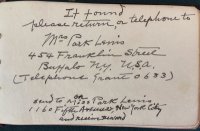 If found
please return, or telephone to
Mrs Park Lewis
454 Franklin Street
Buffalo N.Y. U.S.A.
(Telephone Grant 0633)
or
send to 
1160 Fifth Avenue New York City
and receive reward